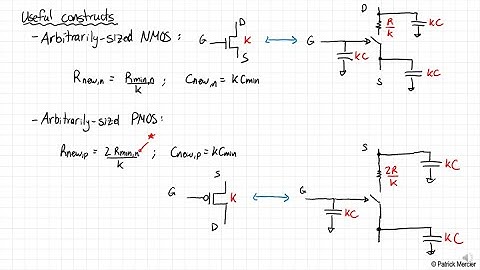 Useful constructs
- Arbitrarily-sized NMOS:
G D K S
G D R/K KC KC KC S
Rnew,n = Rmin,n / K ; Cnew,n = KCmin
- Arbitrarily-sized PMOS:
*
Rnew,p = 2Rmin,n / K ; Cnew,p = KCmin
G S K D
G S 2R/K KC KC KC D
© Patrick Mercier